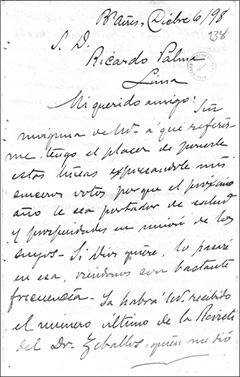 B. Aires, Dicbre 6/98
138
S. D.
Ricardo Palma
Lima
Mi querido amigo: Sin
ninguna de Ud. a que referir-
me, tengo el placer de ponerle
estas líneas expresandole mis
sinceros votos, porque el próximo
año le sea portador de salud
y prosperidades en unión de los
suyos. Si Dios quiere, lo pasaré
en esa, viendonos con bastante
frecuencia. Ya habrá Ud. recibido
el número último de la Revista
del Dr. Zeballos, quien me dió